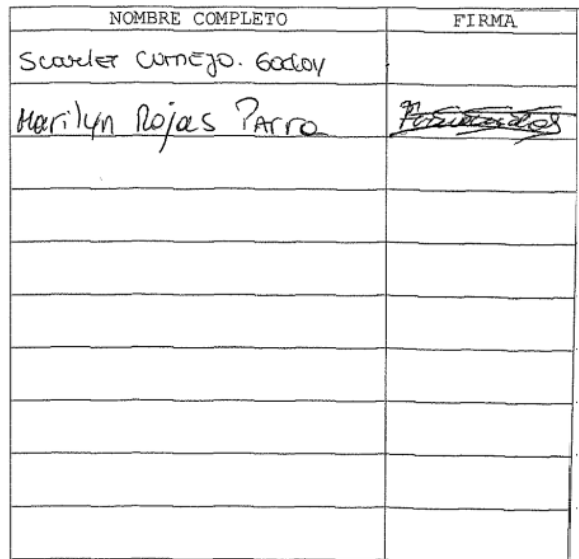 NOMBRE COMPLETO FIRMA
Scarlet Cornejo. Godoy
Marilyn Rojas Parra